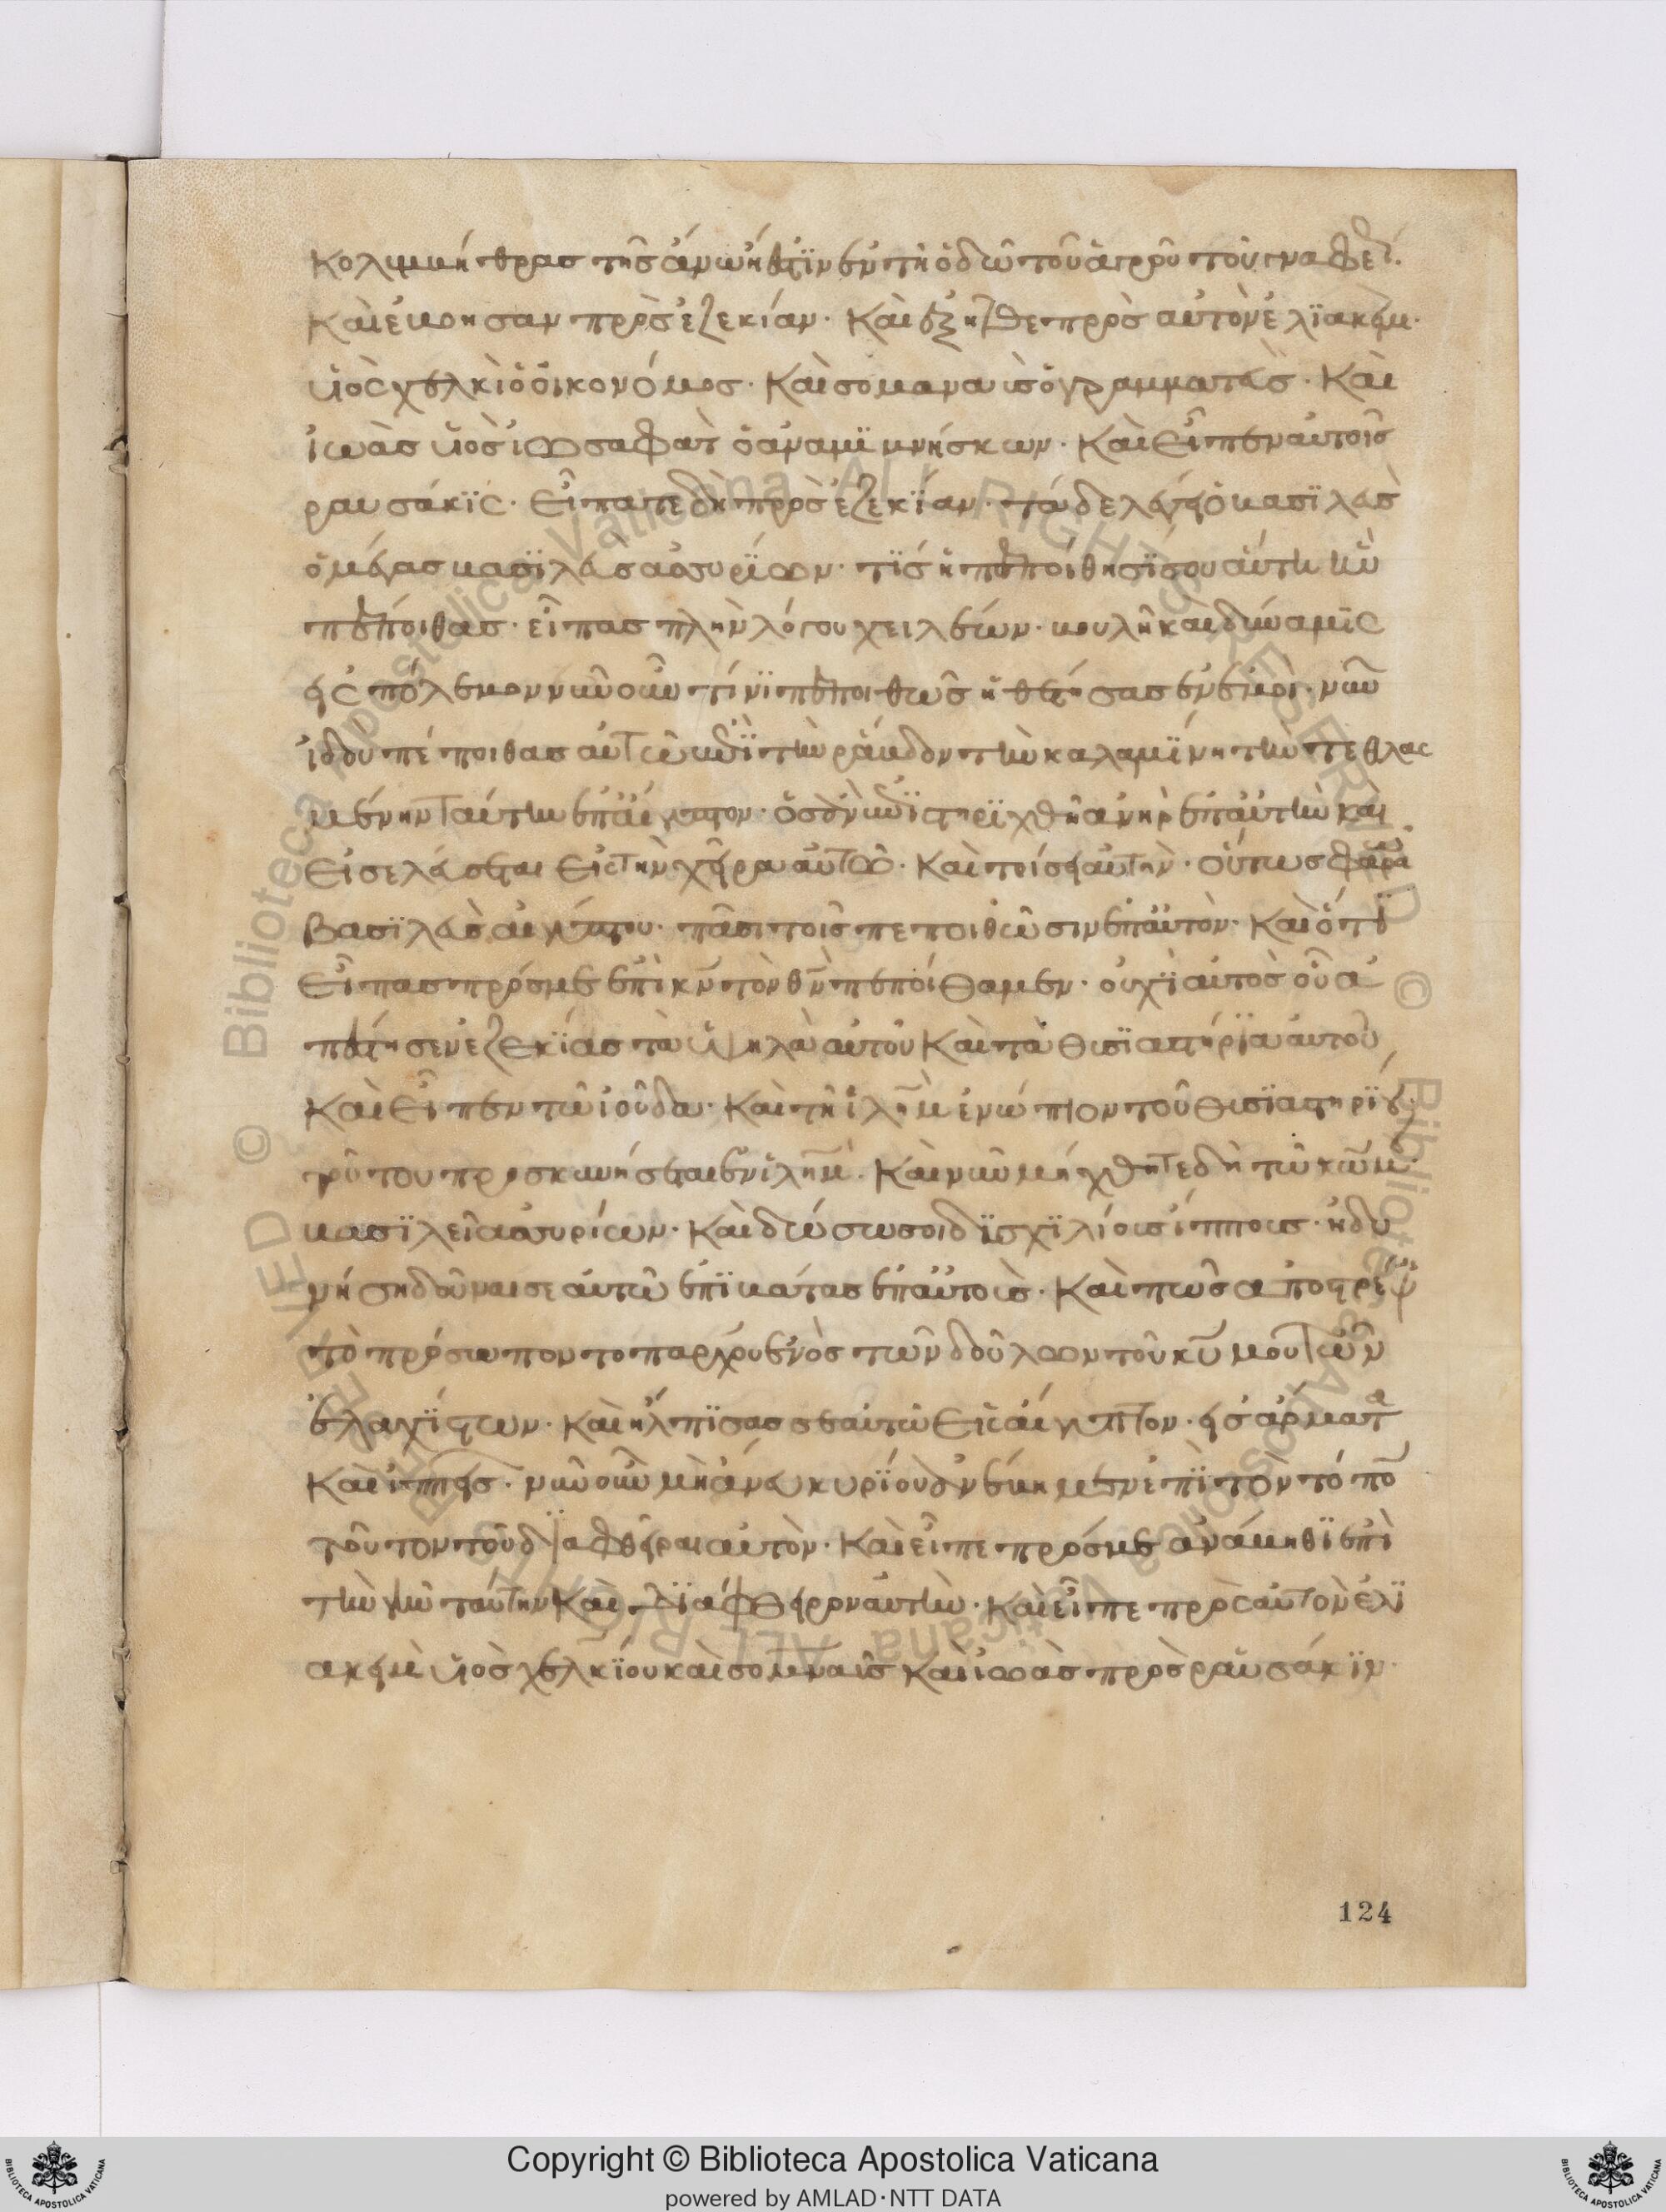 κολιμβήθρας τῆς ἄνω ἥ ἐστϊν ἐν τῆ ὁδῶ τοῦ ἀγροῦ τοῦ γναφέ.
Καὶ ἐβόησαν πρὸς ἐζεκίαν. Καὶ ἐξῆλθε πρὸς αὐτὸν ἐλϊακὴμ.
ϋἱὸς χελκὶ ὁ οἰκονόμος. Καὶ σομανα ις ὁ γραμματεὺς. Καὶ
ἰωὰς υἱὸς ἰωσαφὰτ ὁ ἀναμϊμνήσκων. Καὶ εἶπεν αὐτοῖς
ραυσάκϊς. εἴπατε δὴ πρὸς ἐζεκϊαν. τάδε λέγει ὁ βασϊλεὺς
ὁ μέγας βασϊλεὺς ἀσσυρϊων. τϊς ἡ πεποίθησϊς σου αὕτη ἣν
πέποιθας. εἶπας πλὴν λόγου χειλέων. βουλὴ καὶ δύναμϊς
εἰς πόλεμον νῦν οὖν τίνϊ πεποιθὼς ἠθέτησας ἐν ἐμοὶ. νῦν
ἰδου πέποιθας αὐτῶ ἐπϊ τὴν ράβδον τὴν καλαμϊνη τὴν τεθλας
μένην ταύτην ἐπ αἴγυπτον. ὃς ἂν ἐπϊστηρϊχθῆ ἀνὴρ ἐπ αὐτὴν καὶ
εἰσελεύσεται εἰς τὴν χεῖρα αὐτοῦ. Καὶ τρίσει αὐτὴν. οὕτως φαραὼ
βασϊλεὺς αἰγύπτου. πᾶσι τοῖς πεποιθῶσιν ἐπ αὐτὸν. Καὶ ὅτϊ
εἶπας πρός με ἐπὶ κν τὸν θν πεποίθαμεν. οὐχϊ αὐτὸς οὗ ἀ
πέστησεν ἐζεκϊας τὰ ὑψηλὰ αὐτοῦ Καὶ τὰ θυσϊαστήρϊα αὐτοῦ
Καὶ εἶπεν τῶ ἰούδα. Καὶ τῆ ἰλημ ἐνώπιον τοῦ θυσϊαστηρϊου
τούτου προσκυνήσεται ἐν ἰλημ. Καὶ νῦν μήχθητε δὴ τῶ κῶ μου
βασϊλεῖ ἀσσυρίων. Καὶ δώσω σοι δϊσχϊλίοις ἵπποις. ἢ δυ
νήση δοῦναι σεαυτῶ ἐπϊβάτας ἐπ αὐτοὶς. Καὶ πῶς ἀποστρέψ
τὸ πρόσωπον τοπάρχου ἑνὸς τῶν δούλων τοῦ κυ μου τῶν
ἐλαχϊστων. Καὶ ἤλπϊσας σεαυτῶ εἰς αἴγυπτον. εἰς ἅρματα
Καὶ ἱππεῖς. νῦν οὖν μὴ ἄνευ κυρϊου ἀνέβημεν ἐπϊ τὸν τόπον
τοῦτον τοῦ δϊαφθεῖραι αὐτὸν. Καὶ εἶπε πρός με ἀνάβηθϊ ἐπὶ
τὴν γῆν ταύτην Καὶ δϊάφθειρον αὐτὴν. Καὶ εἶπε πρὸς αὐτὸν ἐλϊ
ακεὶμ υἱὸς χελκϊου καὶ σομναῖς Καὶ ἰωὰς πρὸς ραυσάκϊν.
124
Copyright © Biblioteca Apostolica Vaticana
powered by AMLAD·NTT DATA